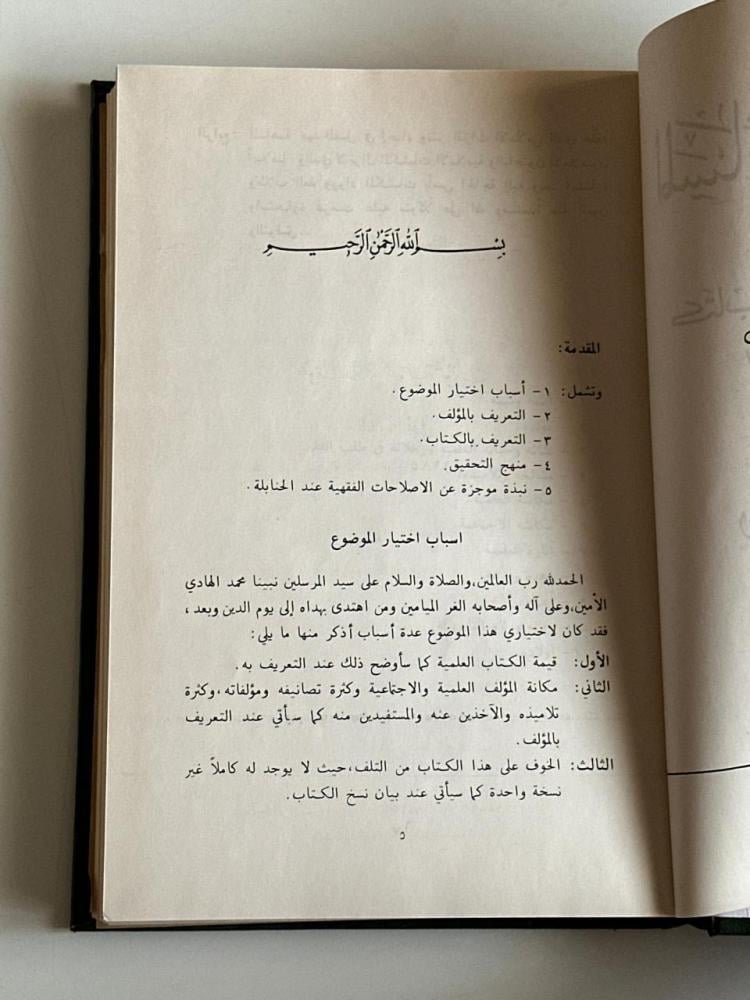 بسم الله الرحمن الرحيم
المقدمة:
وتشمل: ١- أسباب اختيار الموضوع.
٢- التعريف بالمؤلف.
٣- التعريف بالكتاب.
٤- منهج التحقيق.
٥- نبذة موجزة عن الاصلاحات الفقهية عند الحنابلة.
اسباب اختيار الموضوع
الحمدلله رب العالمين،والصلاة والسلام على سيد المرسلين نبينا محمد الهادي
الأمين،وعلى آله وأصحابه الغر الميامين ومن اهتدى بهداه إلى يوم الدين وبعد ،
فقد كان لاختياري هذا الموضوع عدة أسباب أذكر منها ما يلي:
الأول: قيمة الكتاب العلمية كما سأوضح ذلك عند التعريف به.
الثاني: مكانة المؤلف العلمية والاجتماعية وكثرة تصانيفه ومؤلفاته،وكثرة
تلاميذه والآخذين عنه والمستفيدين منه كما سيأتي عند التعريف
بالمؤلف.
الثالث: الخوف على هذا الكتاب من التلف،حيث لا يوجد له كاملاً غير
نسخة واحدة كما سيأتي عند بيان نسخ الكتاب.
٥